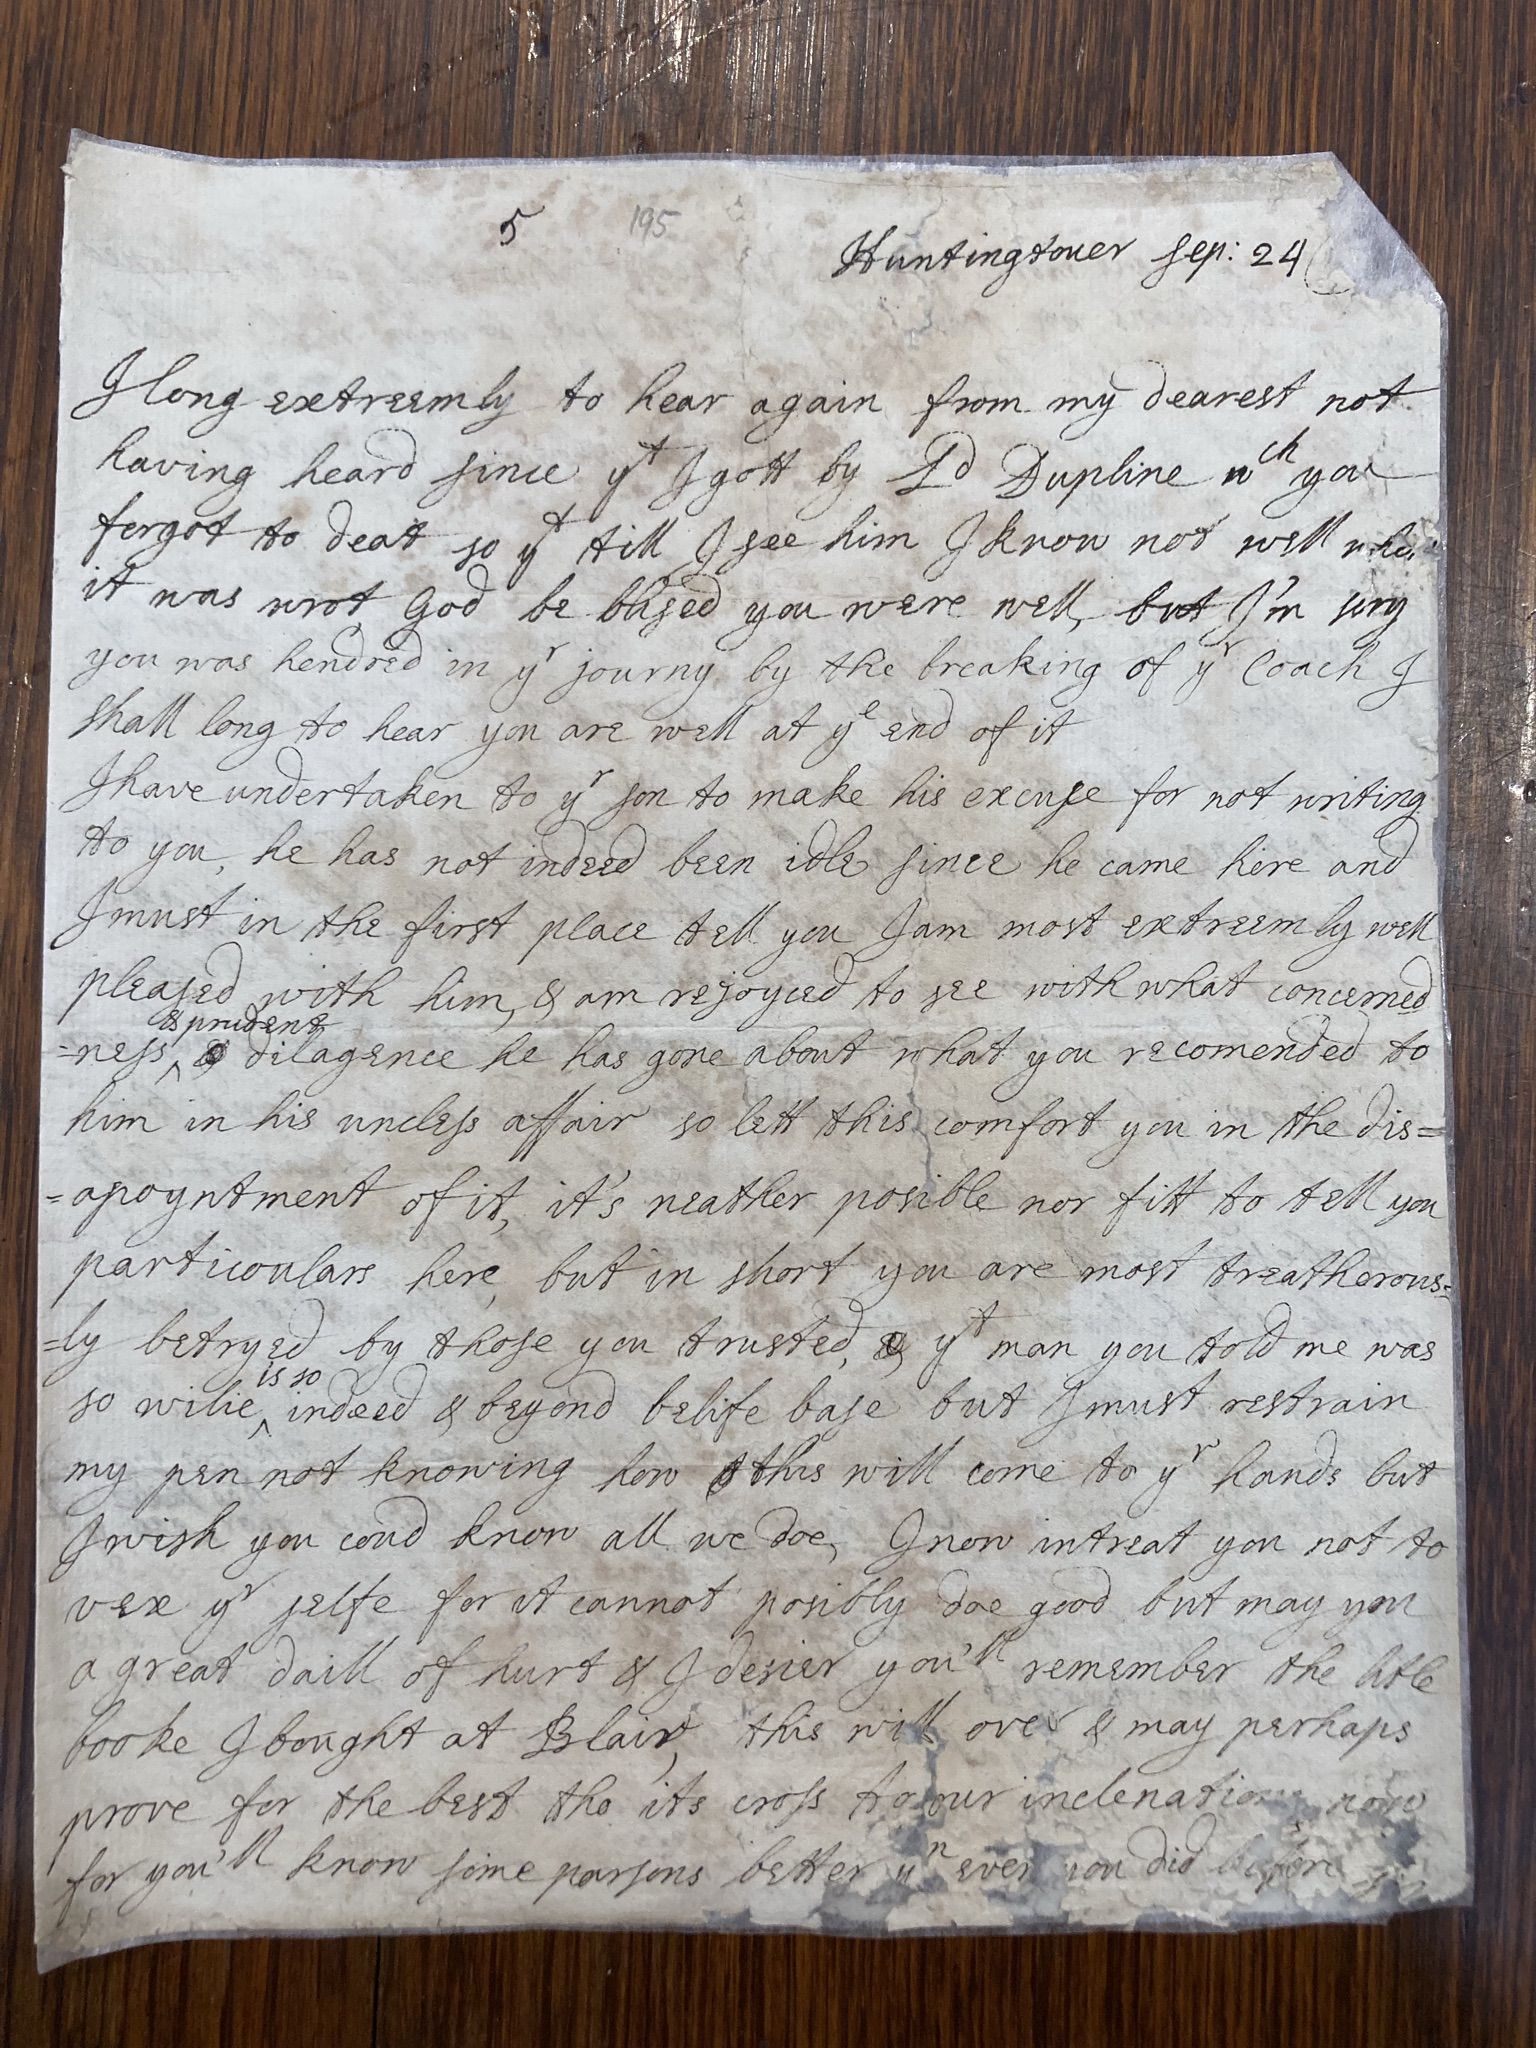 5 195
Huntingtouer Sep: 24
I long extreemly to hear again from my dearest not
having heard since yt I gott by Ld Dupline wch you
forgot to deat so yt till I see him I know not well when
it was wrot God be blised you were well, but I'm sory
you was hendred in yr journy by the breaking of yr Coach I
shall long to hear you are well at ye end of it
I have undertaken to yr son to make his excuse for not writing
to you, he has not indeed been idle since he came here and
I must in the first place tell you I am most extreemly well
pleased with him, & am rejoyced to see with what concerned
& prudent
=ness, & dilagence he has gone about what you recomended to
him in his uncless affair so lett this comfort you in the dis=
=apoyntment of it, it's neather posible nor fitt to tell you
particoulars here, but in short you are most treatherous=
=ly betryed by those you trusted, & yt man you told me was
is so
so wilie ^ indeed & beyond belife base but I must restrain
my pen not knowing how this will come to yr hands but
I wish you coud know all we doe, I now intreat you not to
vex yr selfe for it cannot posibly doe good but may you
a great daill of hurt & I desier you'll remember the litle
booke I bought at Blair, this will over & may perhaps
prove for the best tho its cross to our inclenations now
for you'll know some parsons better yn ever you did before